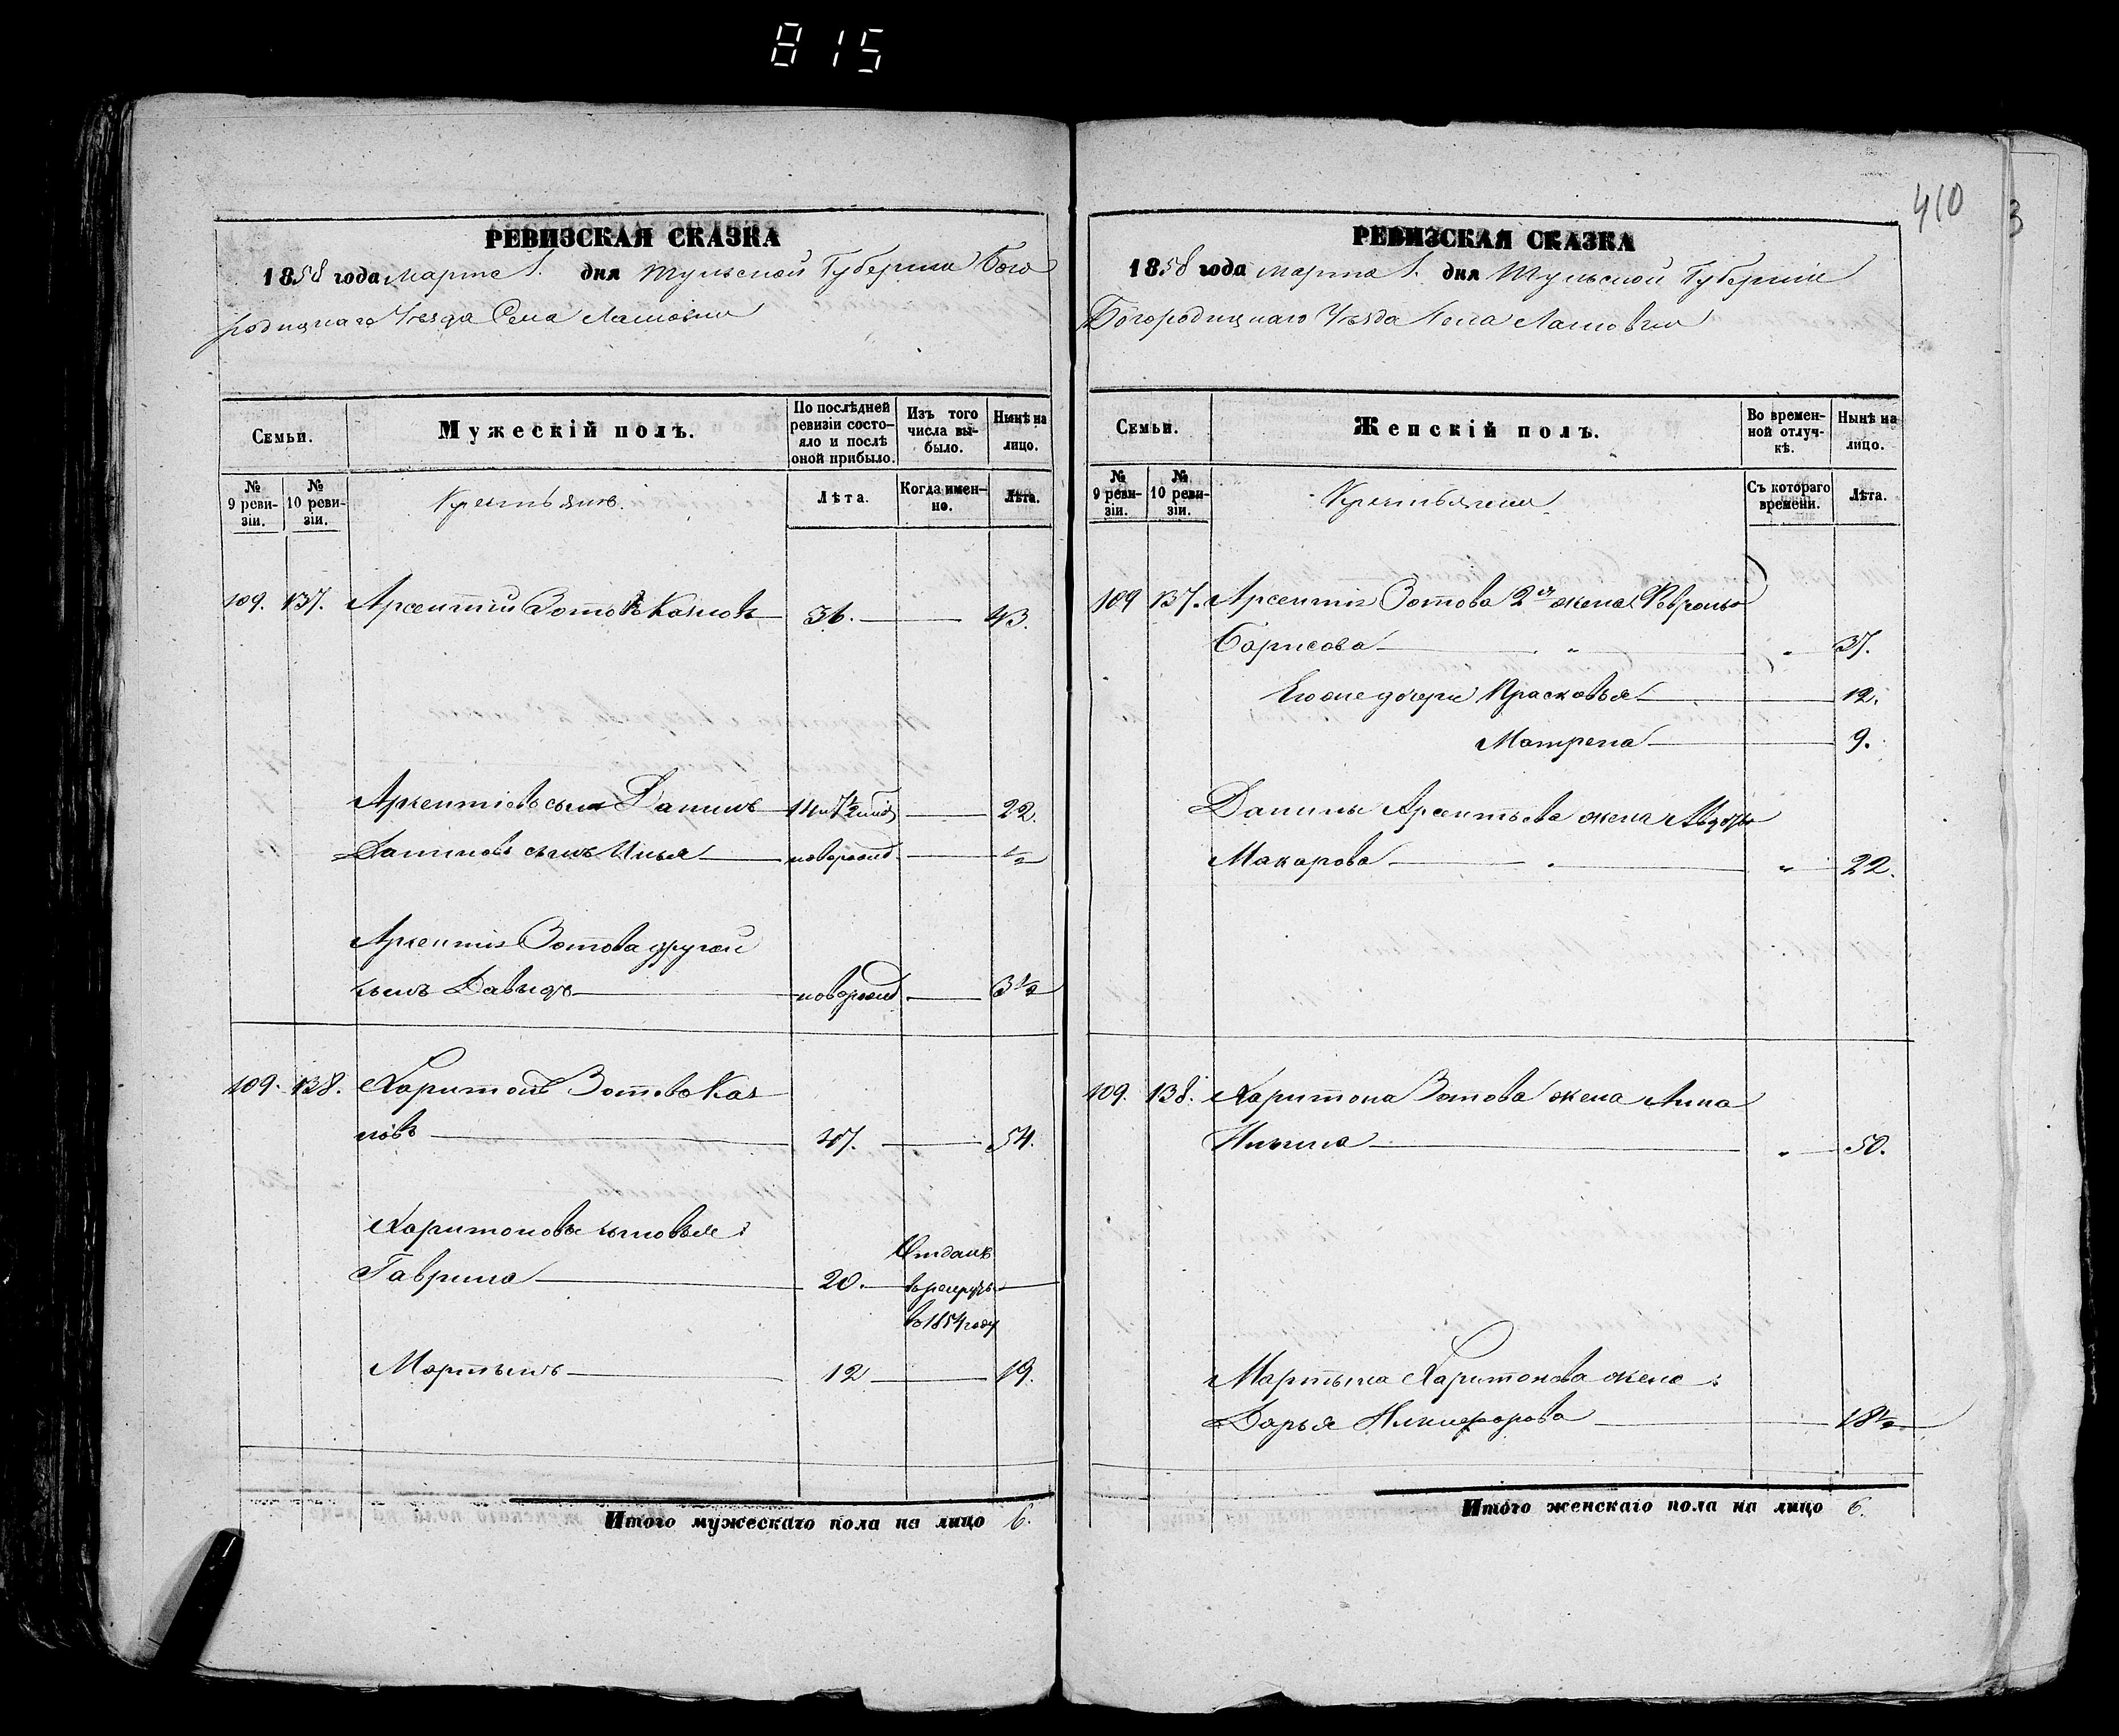 815
410
3
РЕВИЗСКАЯ СКАЗКА
1858 года марта 1. дня Тульской Губернии Бого
родицкаго Уезда Села
Семьи.
Мужескій полъ.
По послѣдней ревизіи состояло и послѣ оной прибыло.
Изъ того числа выбыло.
Нынѣ на лицо.
№ 9 ревизіи.
№ 10 ревизіи.
Крестьянъ.
Лѣта.
Когда именно.
Лѣта.
109. 137. Арсентий Зотовъ Козловъ 36. 43.
Арсентіевъ сынъ Данилъ 22.
Даниловъ сынъ Илья новорожд ½
Арсентія Зотова другой
сынъ Давыдъ новорожд 3½
109. 138. Харитонъ Зотовъ Коз
ловъ 47. 54.
Харитоновы сыновья:
Гаврила 20. Отданъ
въ рекруты
въ 1854 году
Мартынъ 12 19.
Итого мужескаго пола на лицо 6.
РЕВИЗСКАЯ СКАЗКА
1858 года марта 1. дня Тульской Губерніи
Богородицкаго Уѣзда Села
Семьи.
Женскій полъ.
Во временной отлучкѣ.
Нынѣ на лицо.
№ 9 ревизіи.
№ 10 ревизіи.
Съ котораго времени.
Лѣта.
109 137. Арсентія Зотова 2я жена Февронья
Борисова " " 37.
Его же дочери Прасковья 12.
Матрена 9.
Данилы Арсентьева жена Авдотья
Макарова " 22.
109. 138. Харитона Зотова жена Анна
Ильина " 50.
Мартына Харитонова жена:
Дарья Никифорова 18½
Итого женскаго пола на лицо 6.